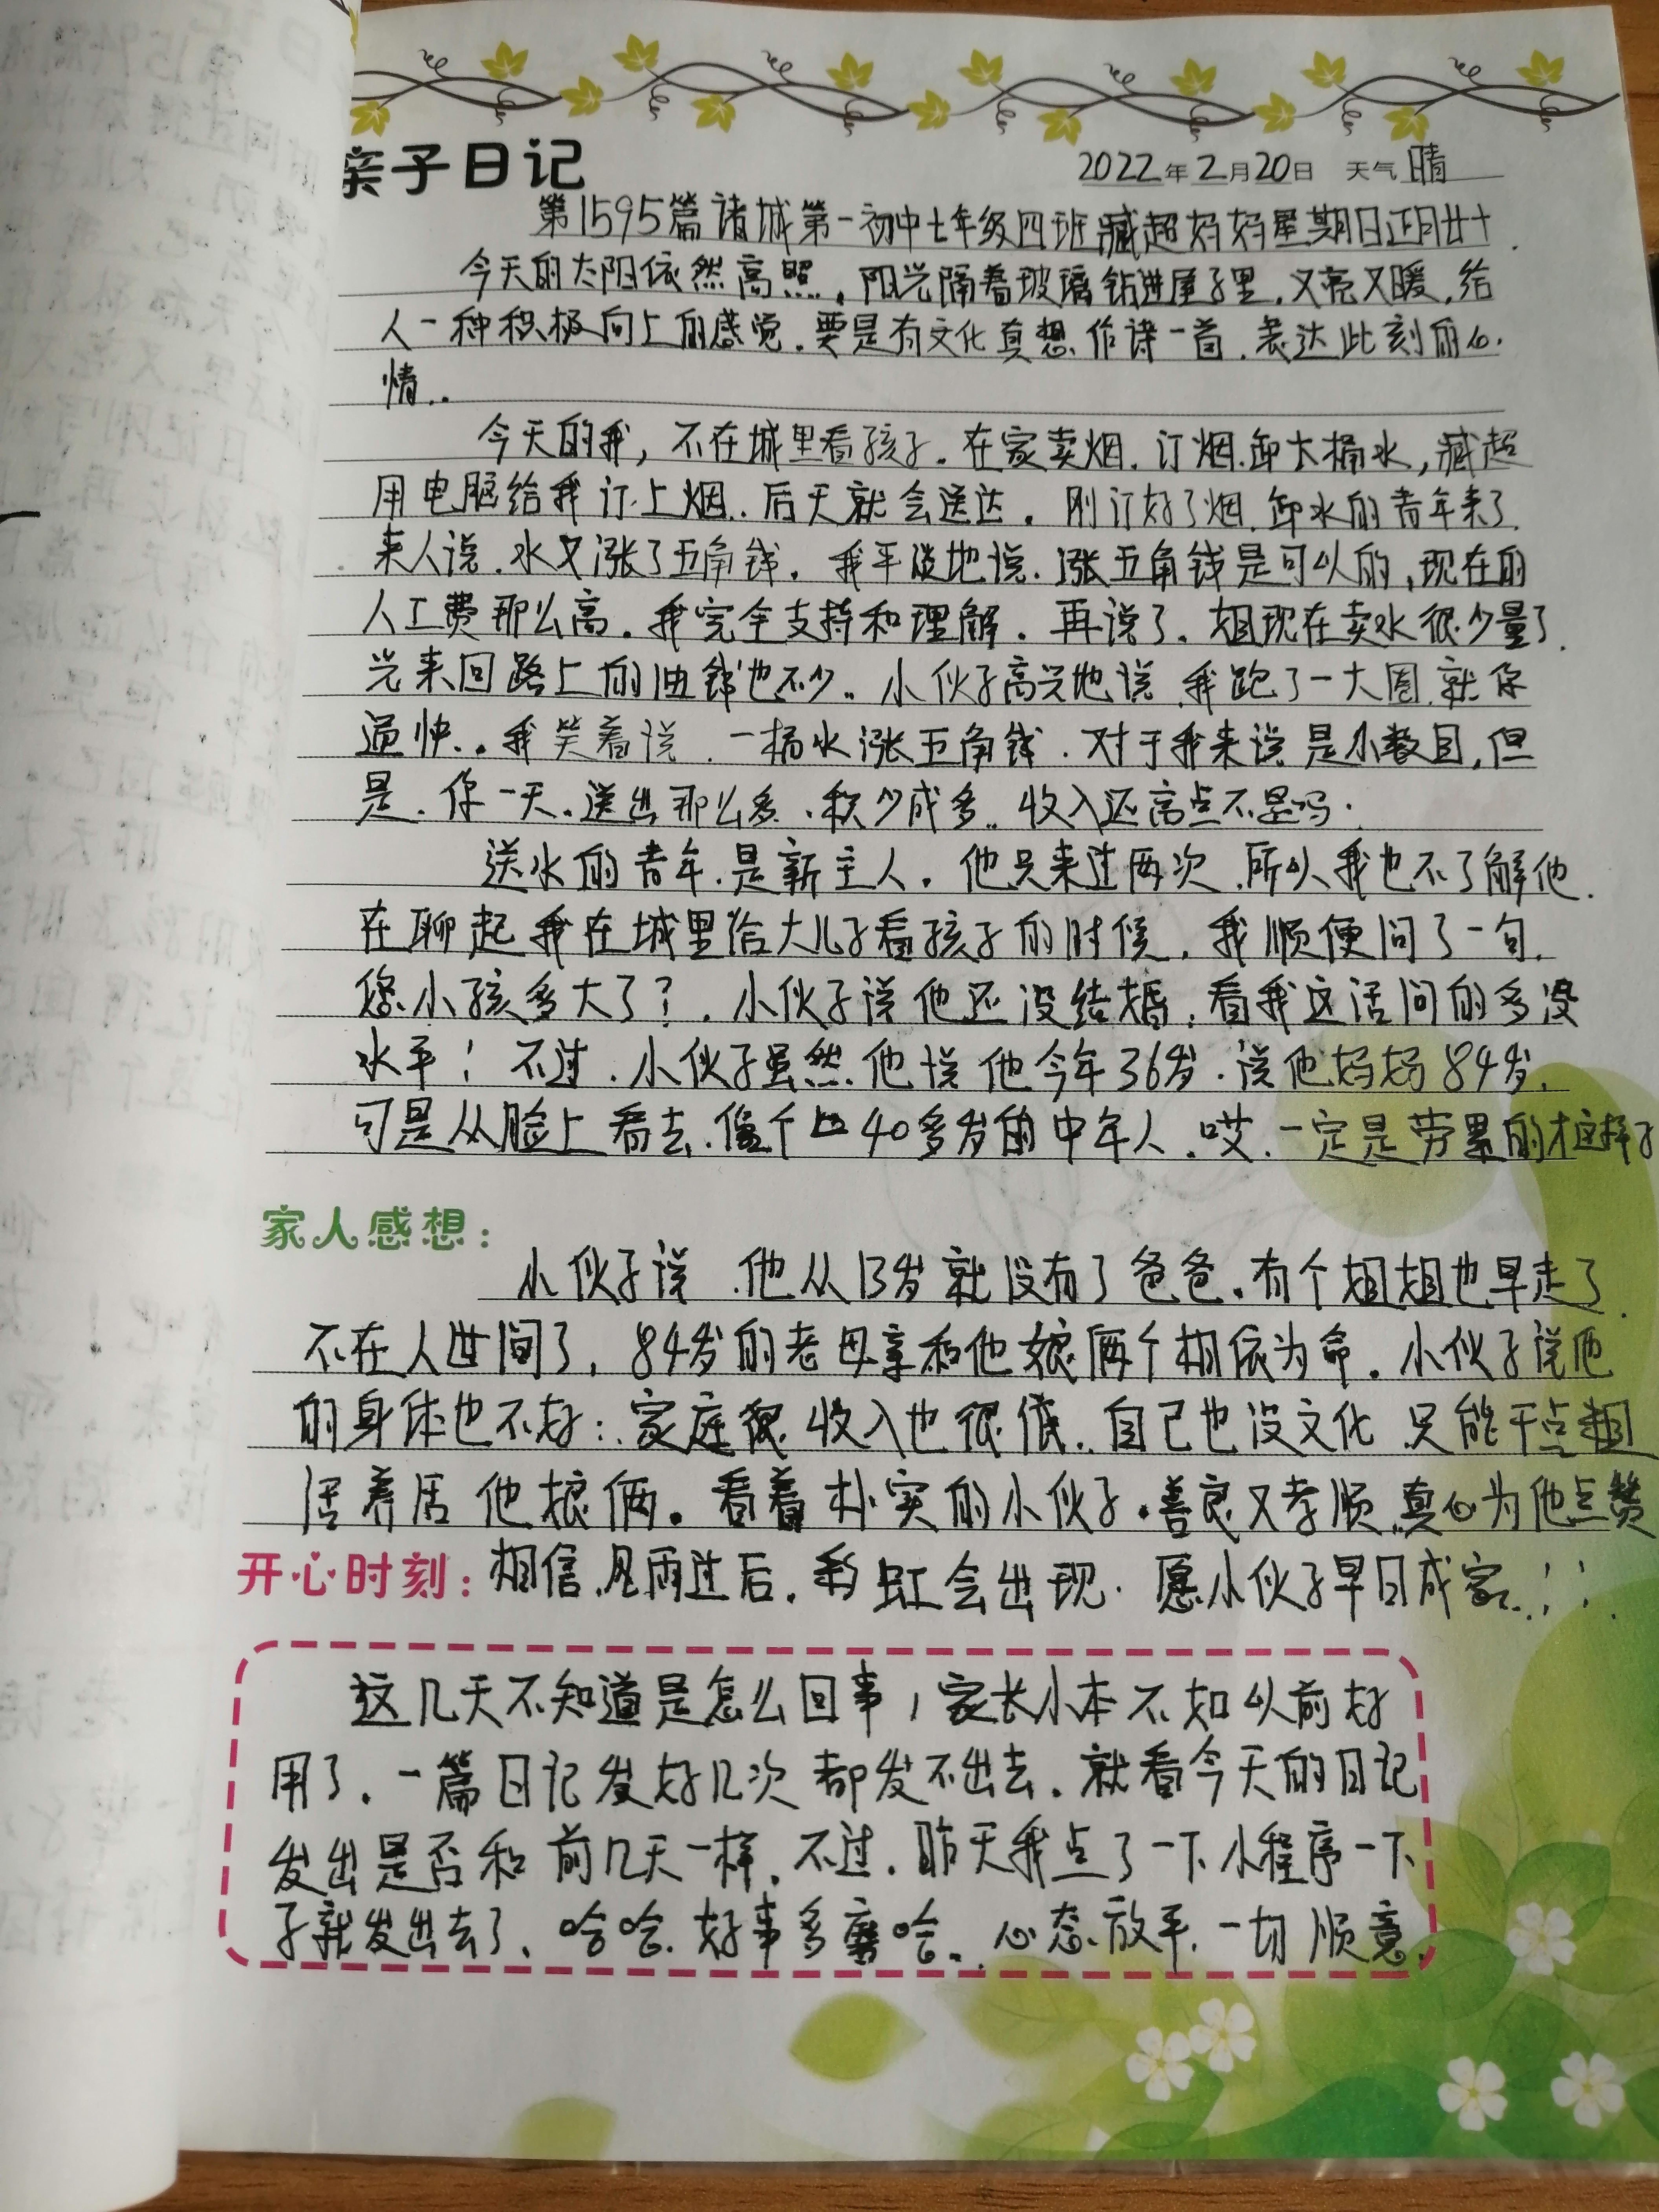 亲子日记
2022年2月20日 天气 晴
第1595篇 诸城第一初中七年级四班臧超妈妈星期日正月廿十.
今天的太阳依然高照,阳光隔着玻璃钻进屋子里,又亮又暖,给
人一种积极向上的感觉.要是有文化真想作诗一首,表达此刻的心
情..
今天的我,不在城里看孩子.在家卖烟.订烟.卸大桶水,臧超
用电脑给我订上烟..后天就会送达.刚订好了烟.卸水的青年来了.
来人说.水又涨了五角钱.我平淡地说.涨五角钱是可以的,现在的
人工费那么高.我完全支持和理解.再说了.姐现在卖水很少量了.
光来回路上的油钱也不少..小伙子高兴地说,我跑了一大圈.就你
通快..我笑着说.一桶水涨五角钱.对于我来说是小数目,但
是.你一天.送出那么多.积少成多..收入还高点不是吗.
送水的青年.是新主人.他只来过两次.所以我也不了解他.
在聊起我在城里给大儿子看孩子的时候.我顺便问了一句.
您小孩多大了?.小伙子说他还没结婚,看我这话问的多没
水平!不过.小伙子虽然他说他今年36岁.说他妈妈84岁.
可是从脸上看去.像个 40多岁的中年人.哎.一定是劳累的才这样子
家人感想:
小伙子说.他从13岁就没有了爸爸.有个姐姐也早走了.
不在人世间了,84岁的老母亲和他娘俩个相依为命.小伙子说他
的身体也不好:.家庭很收入也很低..自己也没文化 只能干点粗
活养活他娘俩.看着朴实的小伙子.善良又孝顺.真心为他点赞
开心时刻:相信.风雨过后.彩虹会出现.愿小伙子早日成家..!!.
这几天不知道是怎么回事,家长小本不如以前好
用了.一篇日记发好几次都发不出去.就看今天的日记
发出是否和前几天一样.不过.昨天我点了一下小程序一下
子就发出去了.哈哈.好事多磨哈..心态放平.一切顺意.